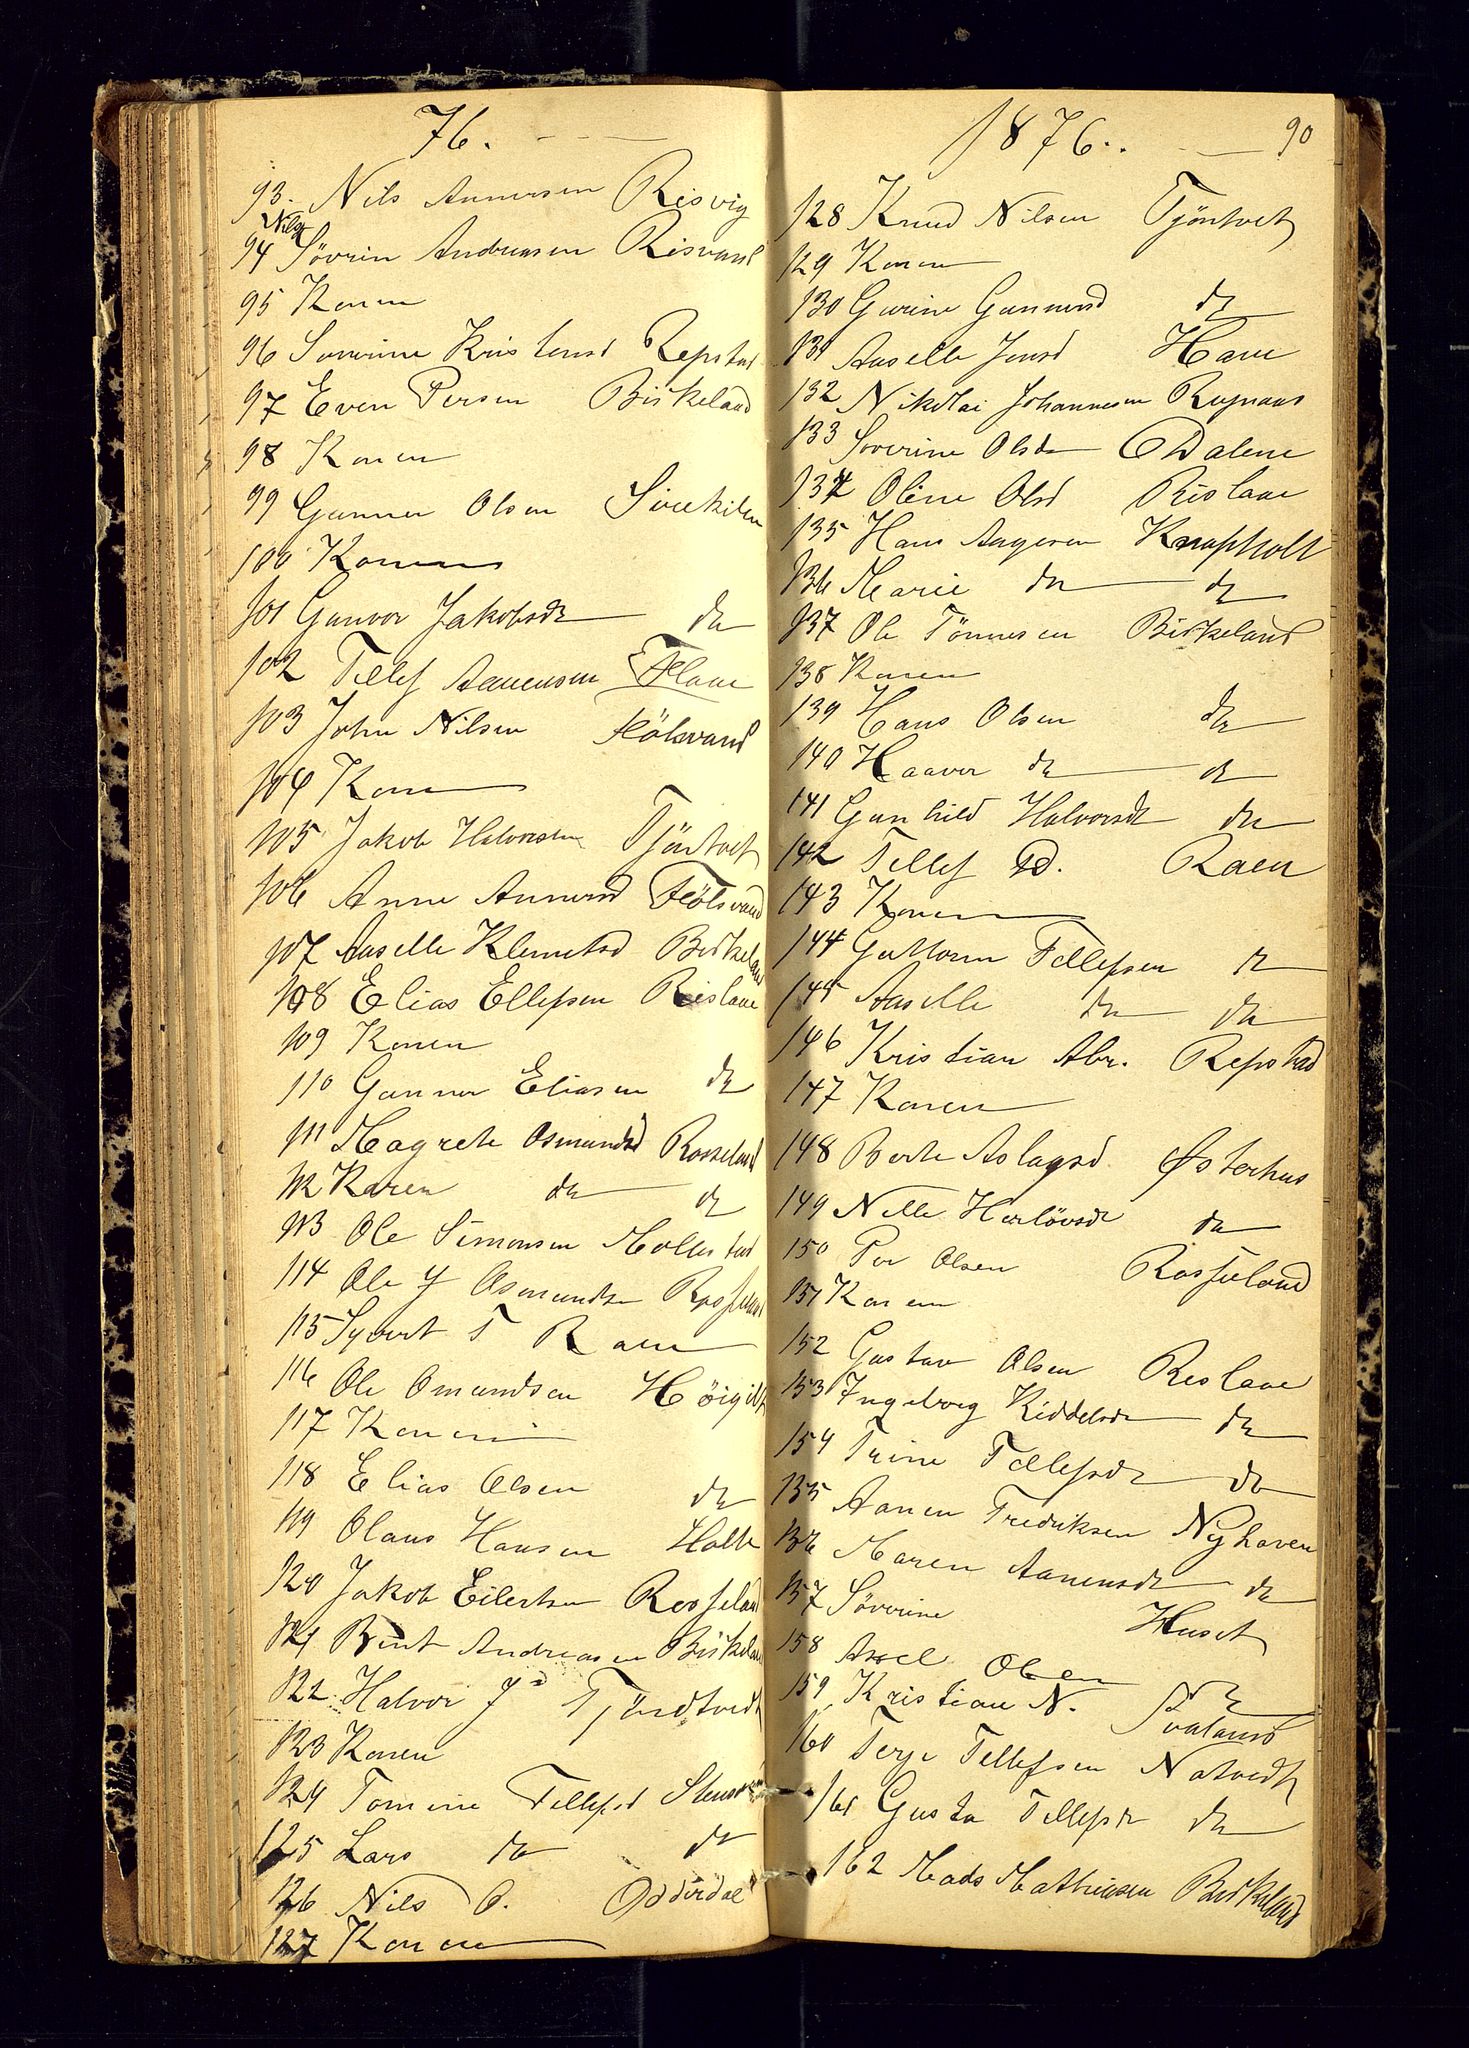 76.
93. Nils Annersen Risvig
Nils
94 Sövrin Andreasen Risvand
95 Konen
96 Sovrine Kristensd Repstad
97 Even Persen Birkeland
98 Konen
99 Gunner Olsen
100 Konen
101 Gunvor Jakobsdr do
102 Tellef Aanensen Flaae
103 John Nilsen Hölsvand
104 Konen
105 Jakob Halvorsen Tjöntvet
106 Anne Annersd Hölsvand
107 Aaselle Klemetsd Birkeland
108 Elias Ellefsen Rislaae
109 Konen
110 Gunner Eliasen do
111 Magrete Osmundsd Rosseland
112 Karen do do
113 Ole Simonsen Mollestad
114 Ole J Osmundsen Rosseland
115 Syvert T Raen
116 Ole Omundsen Höigilt
117 Konen
118 Elias Olsen do
119 Olaus Hansen Holte
120 Jakob Eilertsen Rosseland
121 Bent Andreasen Birkeland
122 Halvor J Tjöndtvedt
123 Konen
124 Tomine Tellefsd
125 Lars do do
126 Nils O. Odderdal
127 Konen
1876. 90
128 Knud Nilsen Tjöntvet
129 Konen
130 Gurine Gunnersd do
131 Aaselle Jensd Haue
132 Nikolai Johannesen Rugnaas
133 Soverine Olsdr Dalene
134 Oline Olsd Rislaae
135 Hans Aagesen Knapholt
136 Marie do do
137 Ole Tönnesen Birkeland
138 Konen
139 Hans Olsen do
140 Haaver do do
141 Gunhild Halvorsdr do
142 Tellef Raen
143 Konen
144 Guttorm Tellefsen do
145 Aaselle do do
146 Kristian Abr. Repstad
147 Konen
148 Berte Aslagsd Østerhus
149 Nelle Herlövsdr do
150 Per Olsen Rosseland
151 Konen
152 Gustav Olsen Rislaae
153 Ingeborg Kiddelsdr do
154 Trine Tellefsdr do
155 Aanen Fredriksen Nyhaven
156 Maren Aanensdr do
157 Söverine Huset
158 Axel Olsen do
159 Kristian N. Svaland
160 Terje Tellefsen Natvedt
161 Gusta Tellefsdr do
162 Mads Mathiesen Birkeland